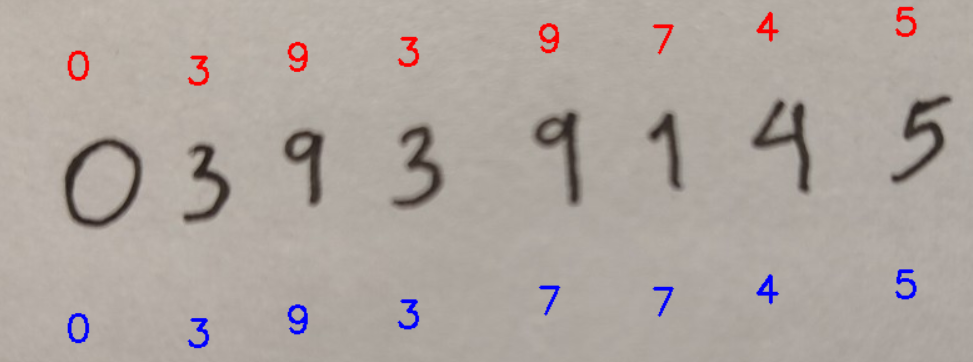 0 3 9 3 9 7 4 5
0 3 9 3 9 1 4 5
0 3 9 3 7 7 4 5